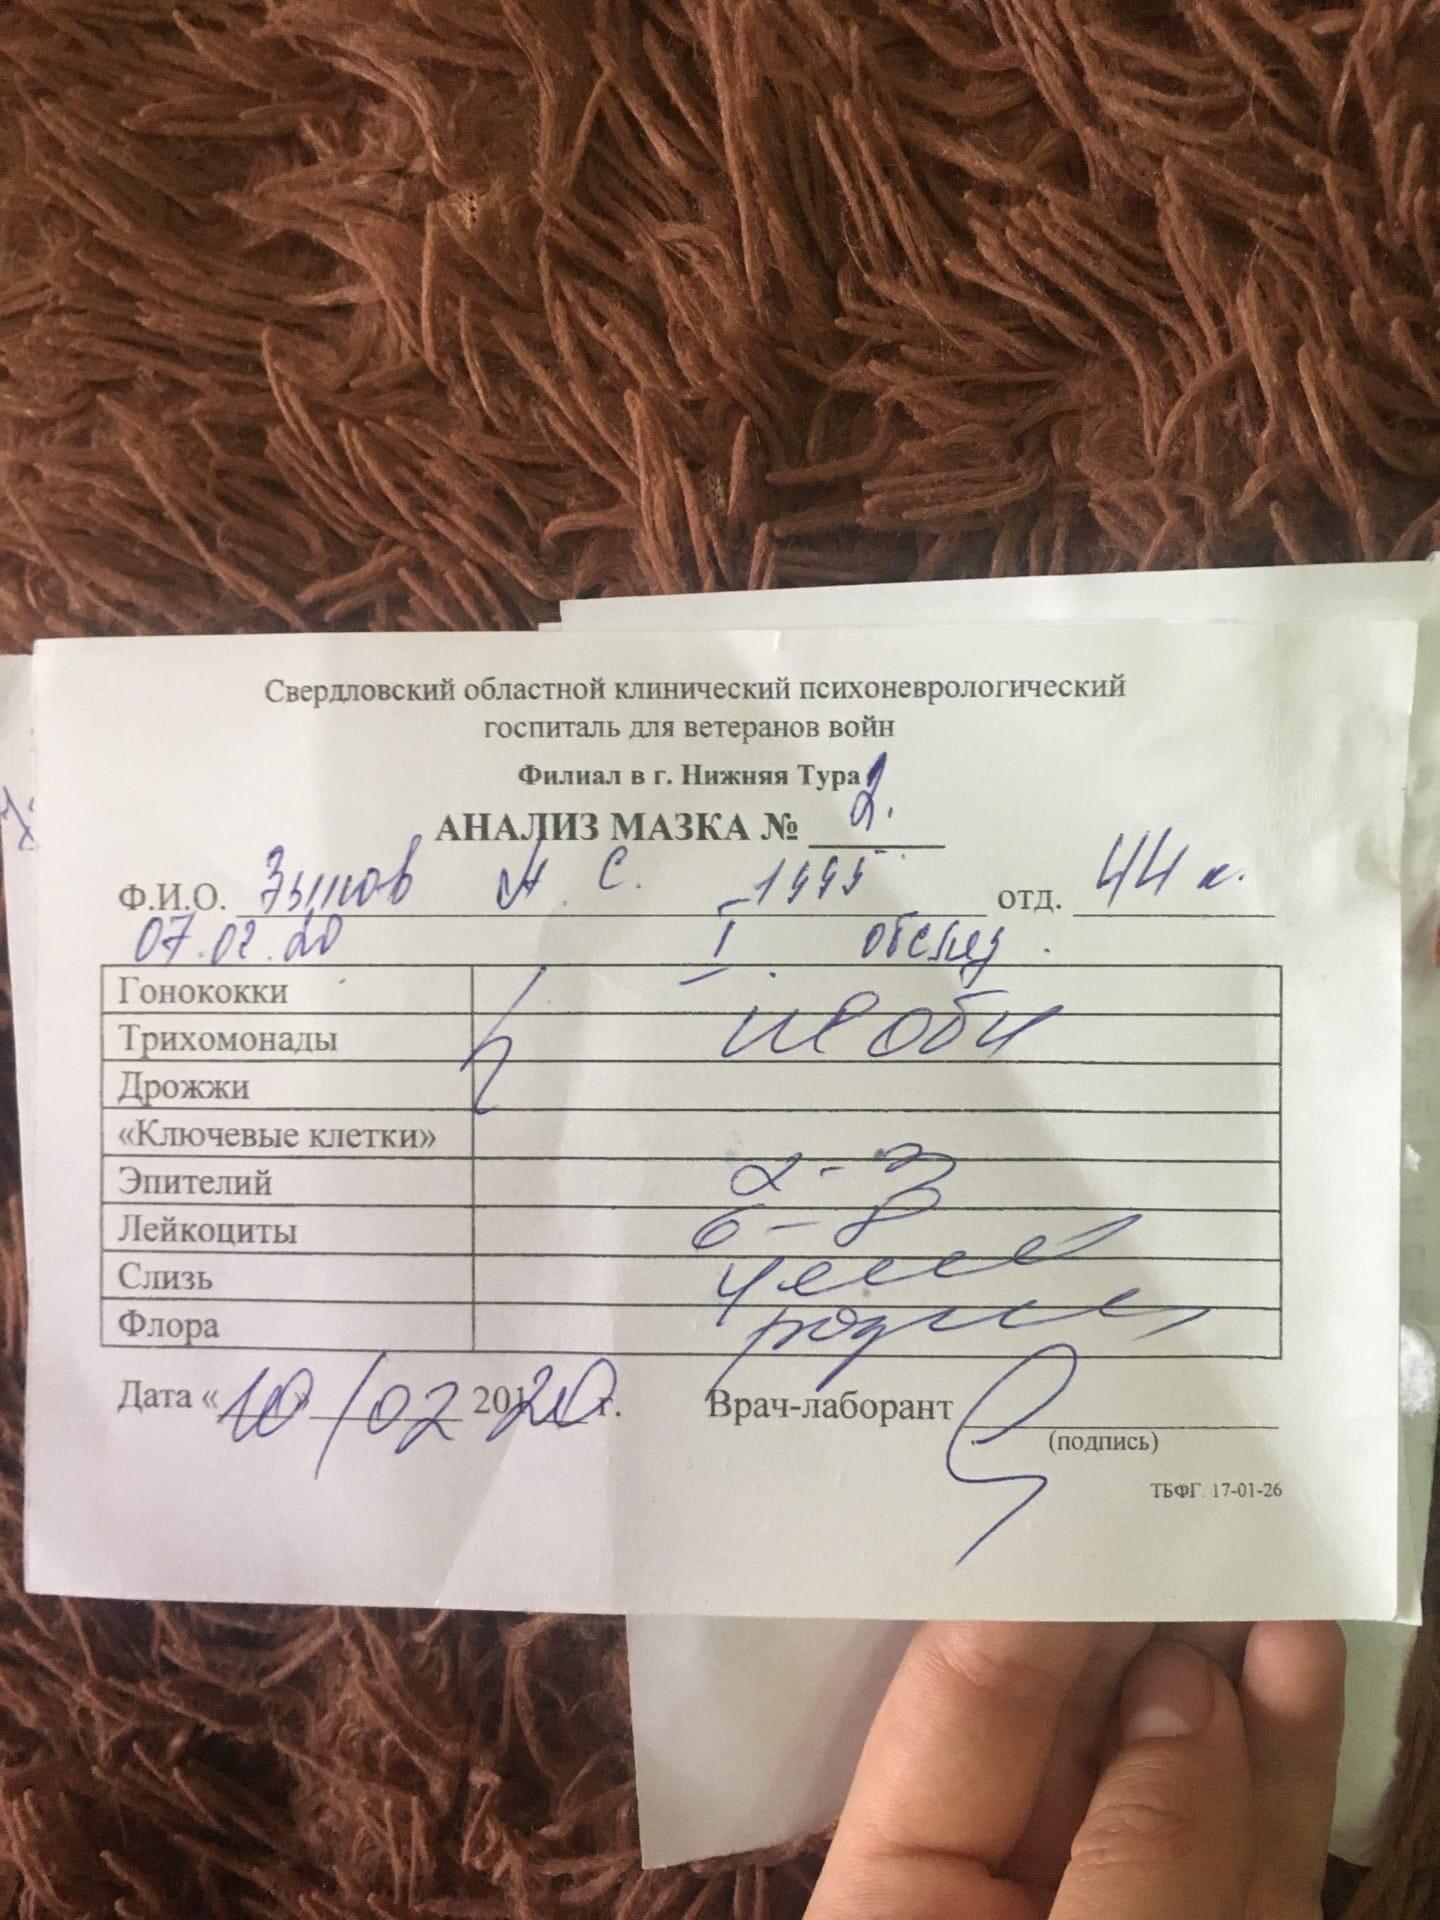 Свердловский областной клинический психоневрологический
госпиталь для ветеранов войн
Филиал в г. Нижняя Тура
АНАЛИЗ МАЗКА № 2.
Ф.И.О. А С. 1995 отд. 44 к.
07.02.20 I обслед.
Гонококки
Трихомонады не обн
Дрожжи
«Ключевые клетки»
Эпителий 2-3
Лейкоциты 6-8
Слизь
Флора
Дата «10» /02 2020 г. Врач-лаборант
(подпись)
ТБФГ. 17-01-26